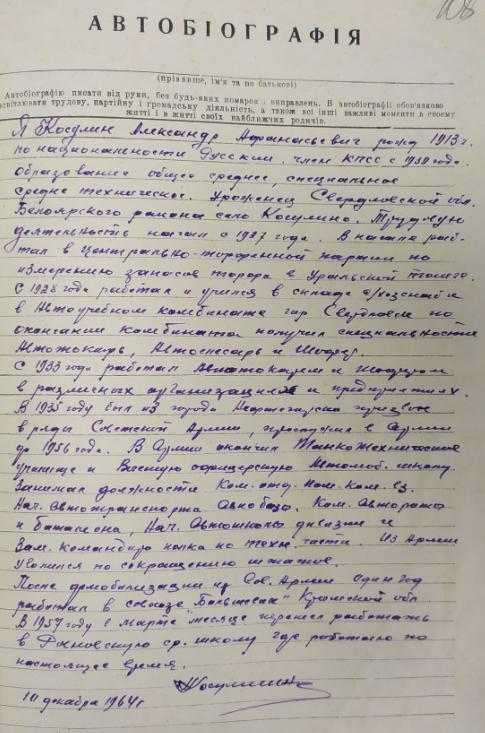 108
АВТОБІОГРАФІЯ
(прізвище, ім'я та по батькові)
Автобіографію писати від руки, без будь-яких помарок і виправлень. В автобіографії обов'язково
освітлювати трудову, партійну і громадську діяльність, а також всі інші важливі моменти в своєму
житті і в житті своїх найближчих родичів.
Я Косулин Александр Афанасьевич рожд 1913 г.
по национальности Русский. член КПСС с 1939 года.
образование общее среднее, специальное
средне техническое. Уроженец Свердловской обл.
Белоярского района село Косулино. Трудовую
деятельность начал с 1927 года. В начале рабо-
тал в центрально-торфянной партии по
измерению запасов торфа в Уральской
С 1928 года работал и учился в складе
в Автоучебном комбинате гор Свердловск по
окончании комбината получил специальности
Автотокарь, Автослесарь и Шофер.
С 1933 года работал Автотокарем и шофером
в различных организациях и предприятиях.
В 1935 году был из города призван
в ряды Советской Армии, прослужил в Армии
до 1956 года. В Армии окончил Танкотехническое
училище и Высшую офицерскую Автомоб. школу.
Занимал должности Ком. отд. пом. ком. вз.
Нач. Автотранспорта Авиобазы. Ком. Автороты
и баталиона, Нач. Автошколы дивизии и
Зам. командира полка по техн. части. Из Армии
уволился по сокращению штатов.
После демобилизации из Сов. Армии один год
работал в совхозе "Большевик" Крымской обл.
В 1957 году в марте месяце перешел работать
в ср. школу где работаю по
настоящее время.
Косулин
10 декабря 1964 г